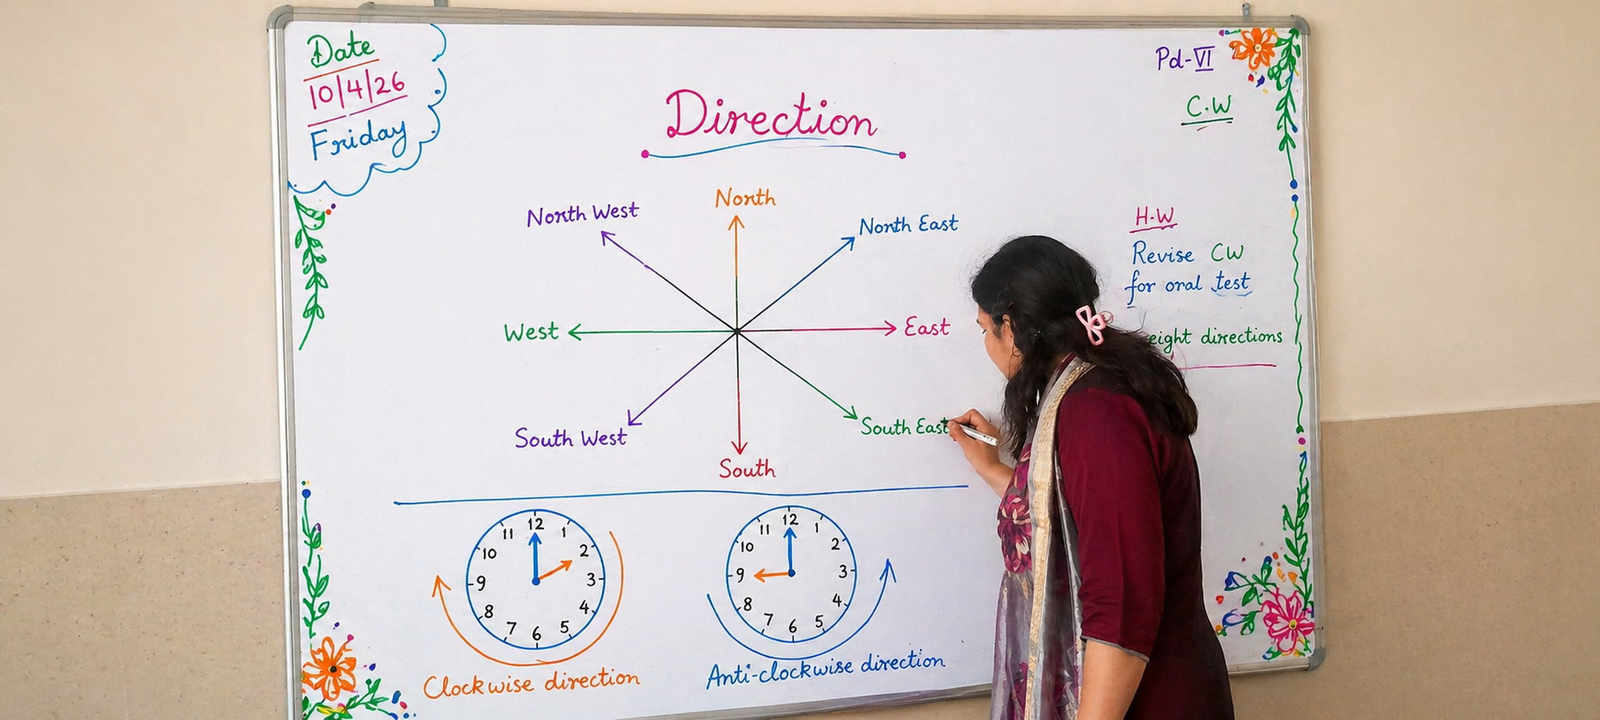 Date
10/4/26
Friday
Pd-VI
C.W
Direction
North West
North
North East
West
East
South West
South
South East
H.W
Revise CW
for oral test
eight directions
12
1
2
3
4
5
6
7
8
9
10
11
Clockwise direction
12
1
2
3
4
5
6
7
8
9
10
11
Anti-clockwise direction